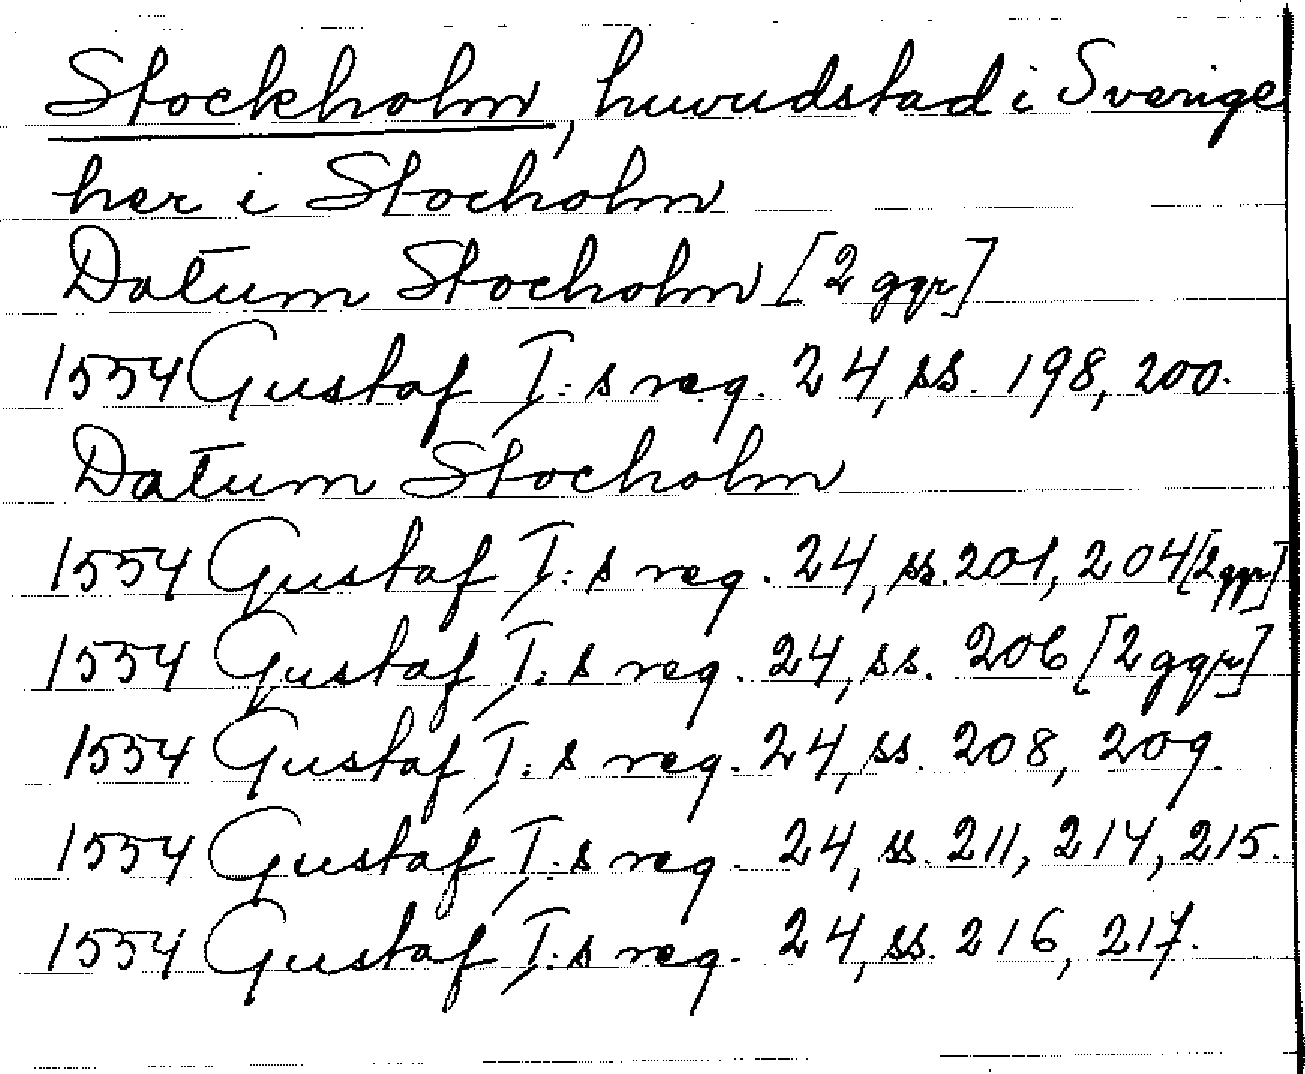 Stockholm, huvudstad i Sverige
her i Stocholm
Datum Stocholm [2 ggr]
1554 Gustaf I:s reg. 24, ss. 198, 200.
Datum Stocholm
1554 Gustaf I:s reg. 24, ss. 201, 204 [2 ggr]
1554 Gustaf I:s reg. 24, ss. 206 [2 ggr]
1554 Gustaf I:s reg. 24, ss. 208, 209.
1554 Gustaf I:s reg. 24, ss. 211, 214, 215.
1554 Gustaf I:s reg. 24, ss. 216, 217.